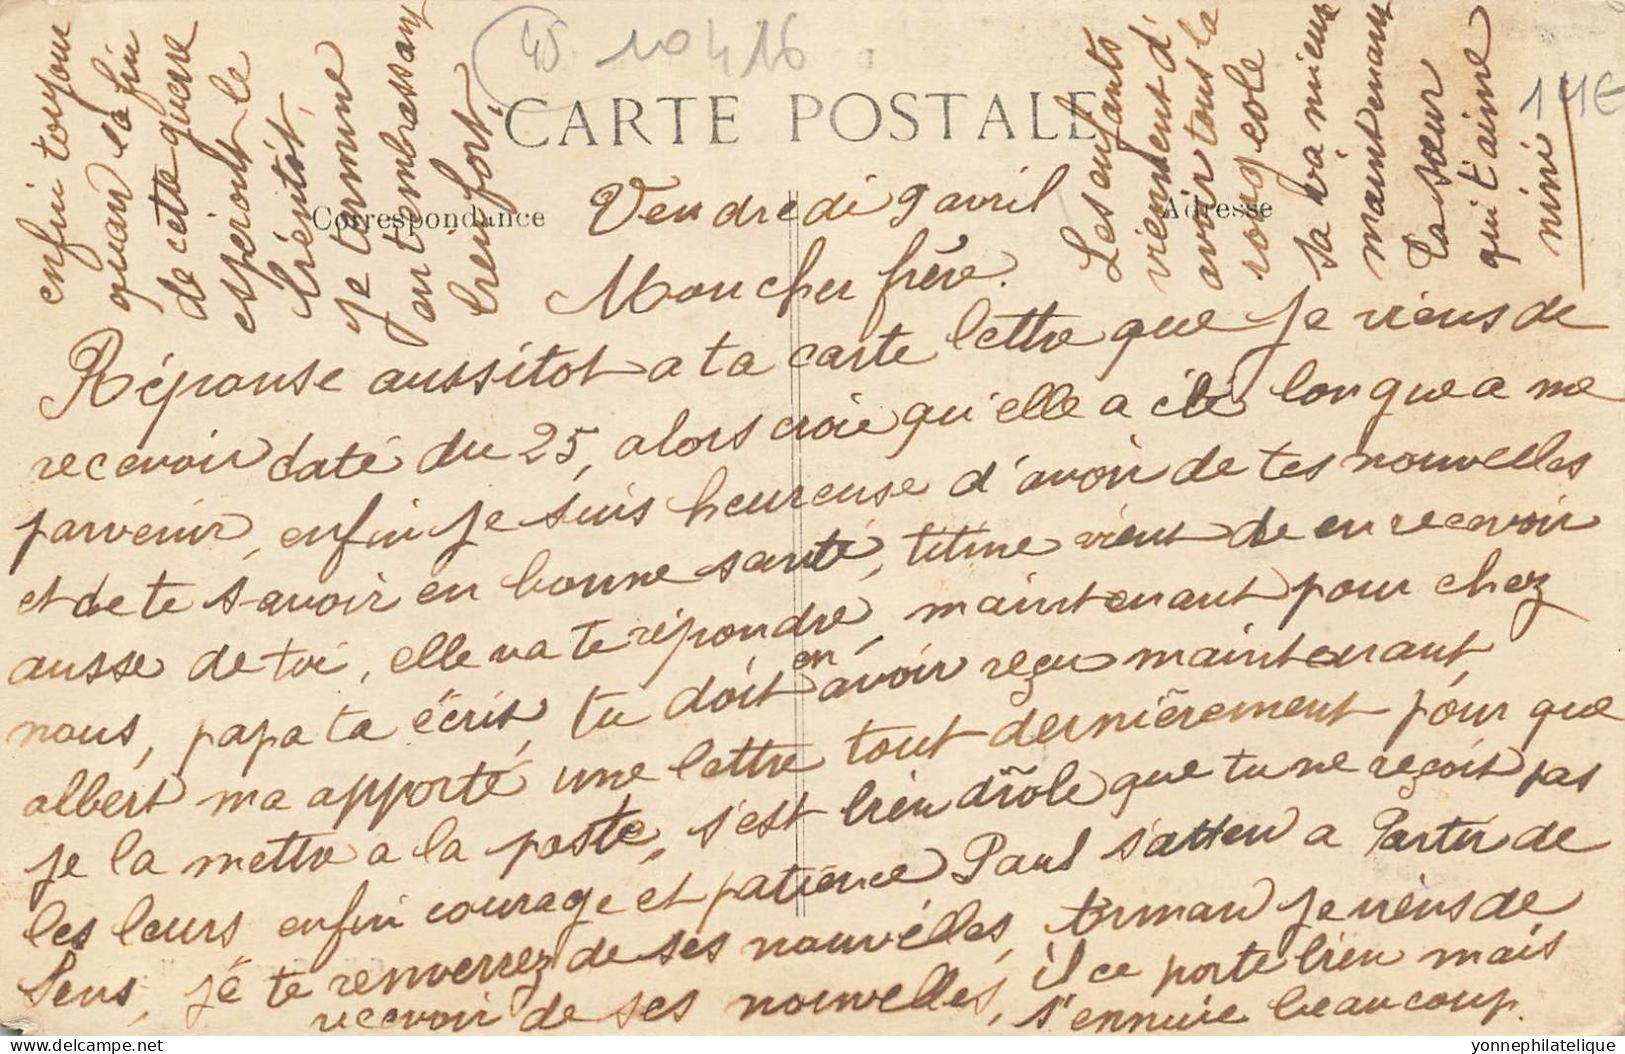 45 10416
CARTE POSTALE
14€
Correspondance
Adresse
Vendredi 9 avril
Mon cher frère.
Réponse aussitot a ta carte lettre que je viens de
recevoir daté du 25, alors croie qu'elle a été longue a me
parvenir, enfin je suis heureuse d'avoir de tes nouvelles
et de te savoir en bonne santé, titine vient de en recevoir
ausse de toi, elle va te répondre, maintenant pour chez
nous, papa ta écris, tu doit en avoir reçu maintenant
albert ma apporté une lettre tout dernièrement pour que
je la mette a la poste, s'est bien drôle que tu ne reçoit pas
les leurs, enfin courage et patience Paul s'atten a Partir de
Sens, je te renverrez de ses nouvélles, Arman je viens de
recevoir de ses nouvelles, il ce porte bien mais
s'ennuie beaucoup.
enfin toujou
quan la fin
de cette guere
esperont le
bientôt,
je termine
en t'embrassan
bien fort,
Les enfants
viennent d'
avoir tous la
rougeole
sa va mieux
maintenant
Ta sœur
qui t'aime
nini
yonnephilatelique
delcampe.net